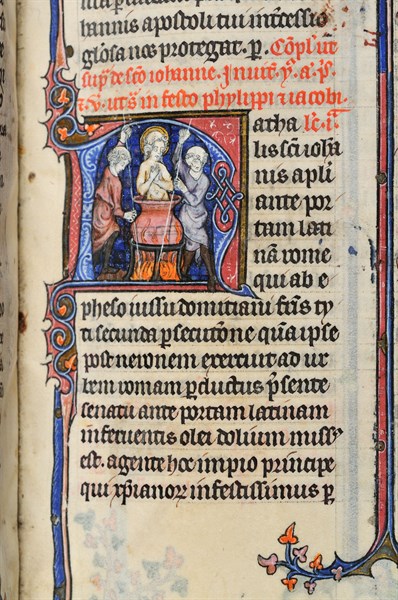 hannis apostoli tui intercessio
gloriosa nos protegat. p. Copl. ut
sup. de sco iohanne. Inuit. y. a. p.
ut in festo phylippi et iacobi.
Natha le. i.
lis sci ioha
nis apli
ante por
tam lati
nam rome
qui ab e
pheso iussu domitiani fris ty
ti secunda psecutone qua ipse
post neronem exercuit ad ur
bem romam pductus psente
senatu ante portam latinam
in feruentis olei dolium missy
est. agente hoc impio principe
qui xpianor infestissimus p